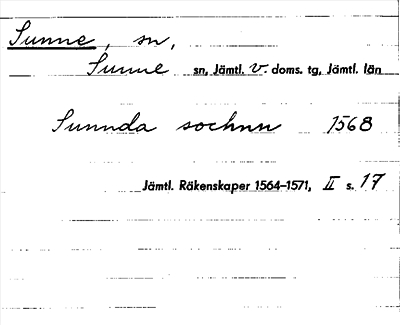 Sunne, sn,
Sunne sn, Jämtl. v. doms. tg, Jämtl. län
Sunnda sochnn 1568
Jämtl. Räkenskaper 1564–1571, II s. 17